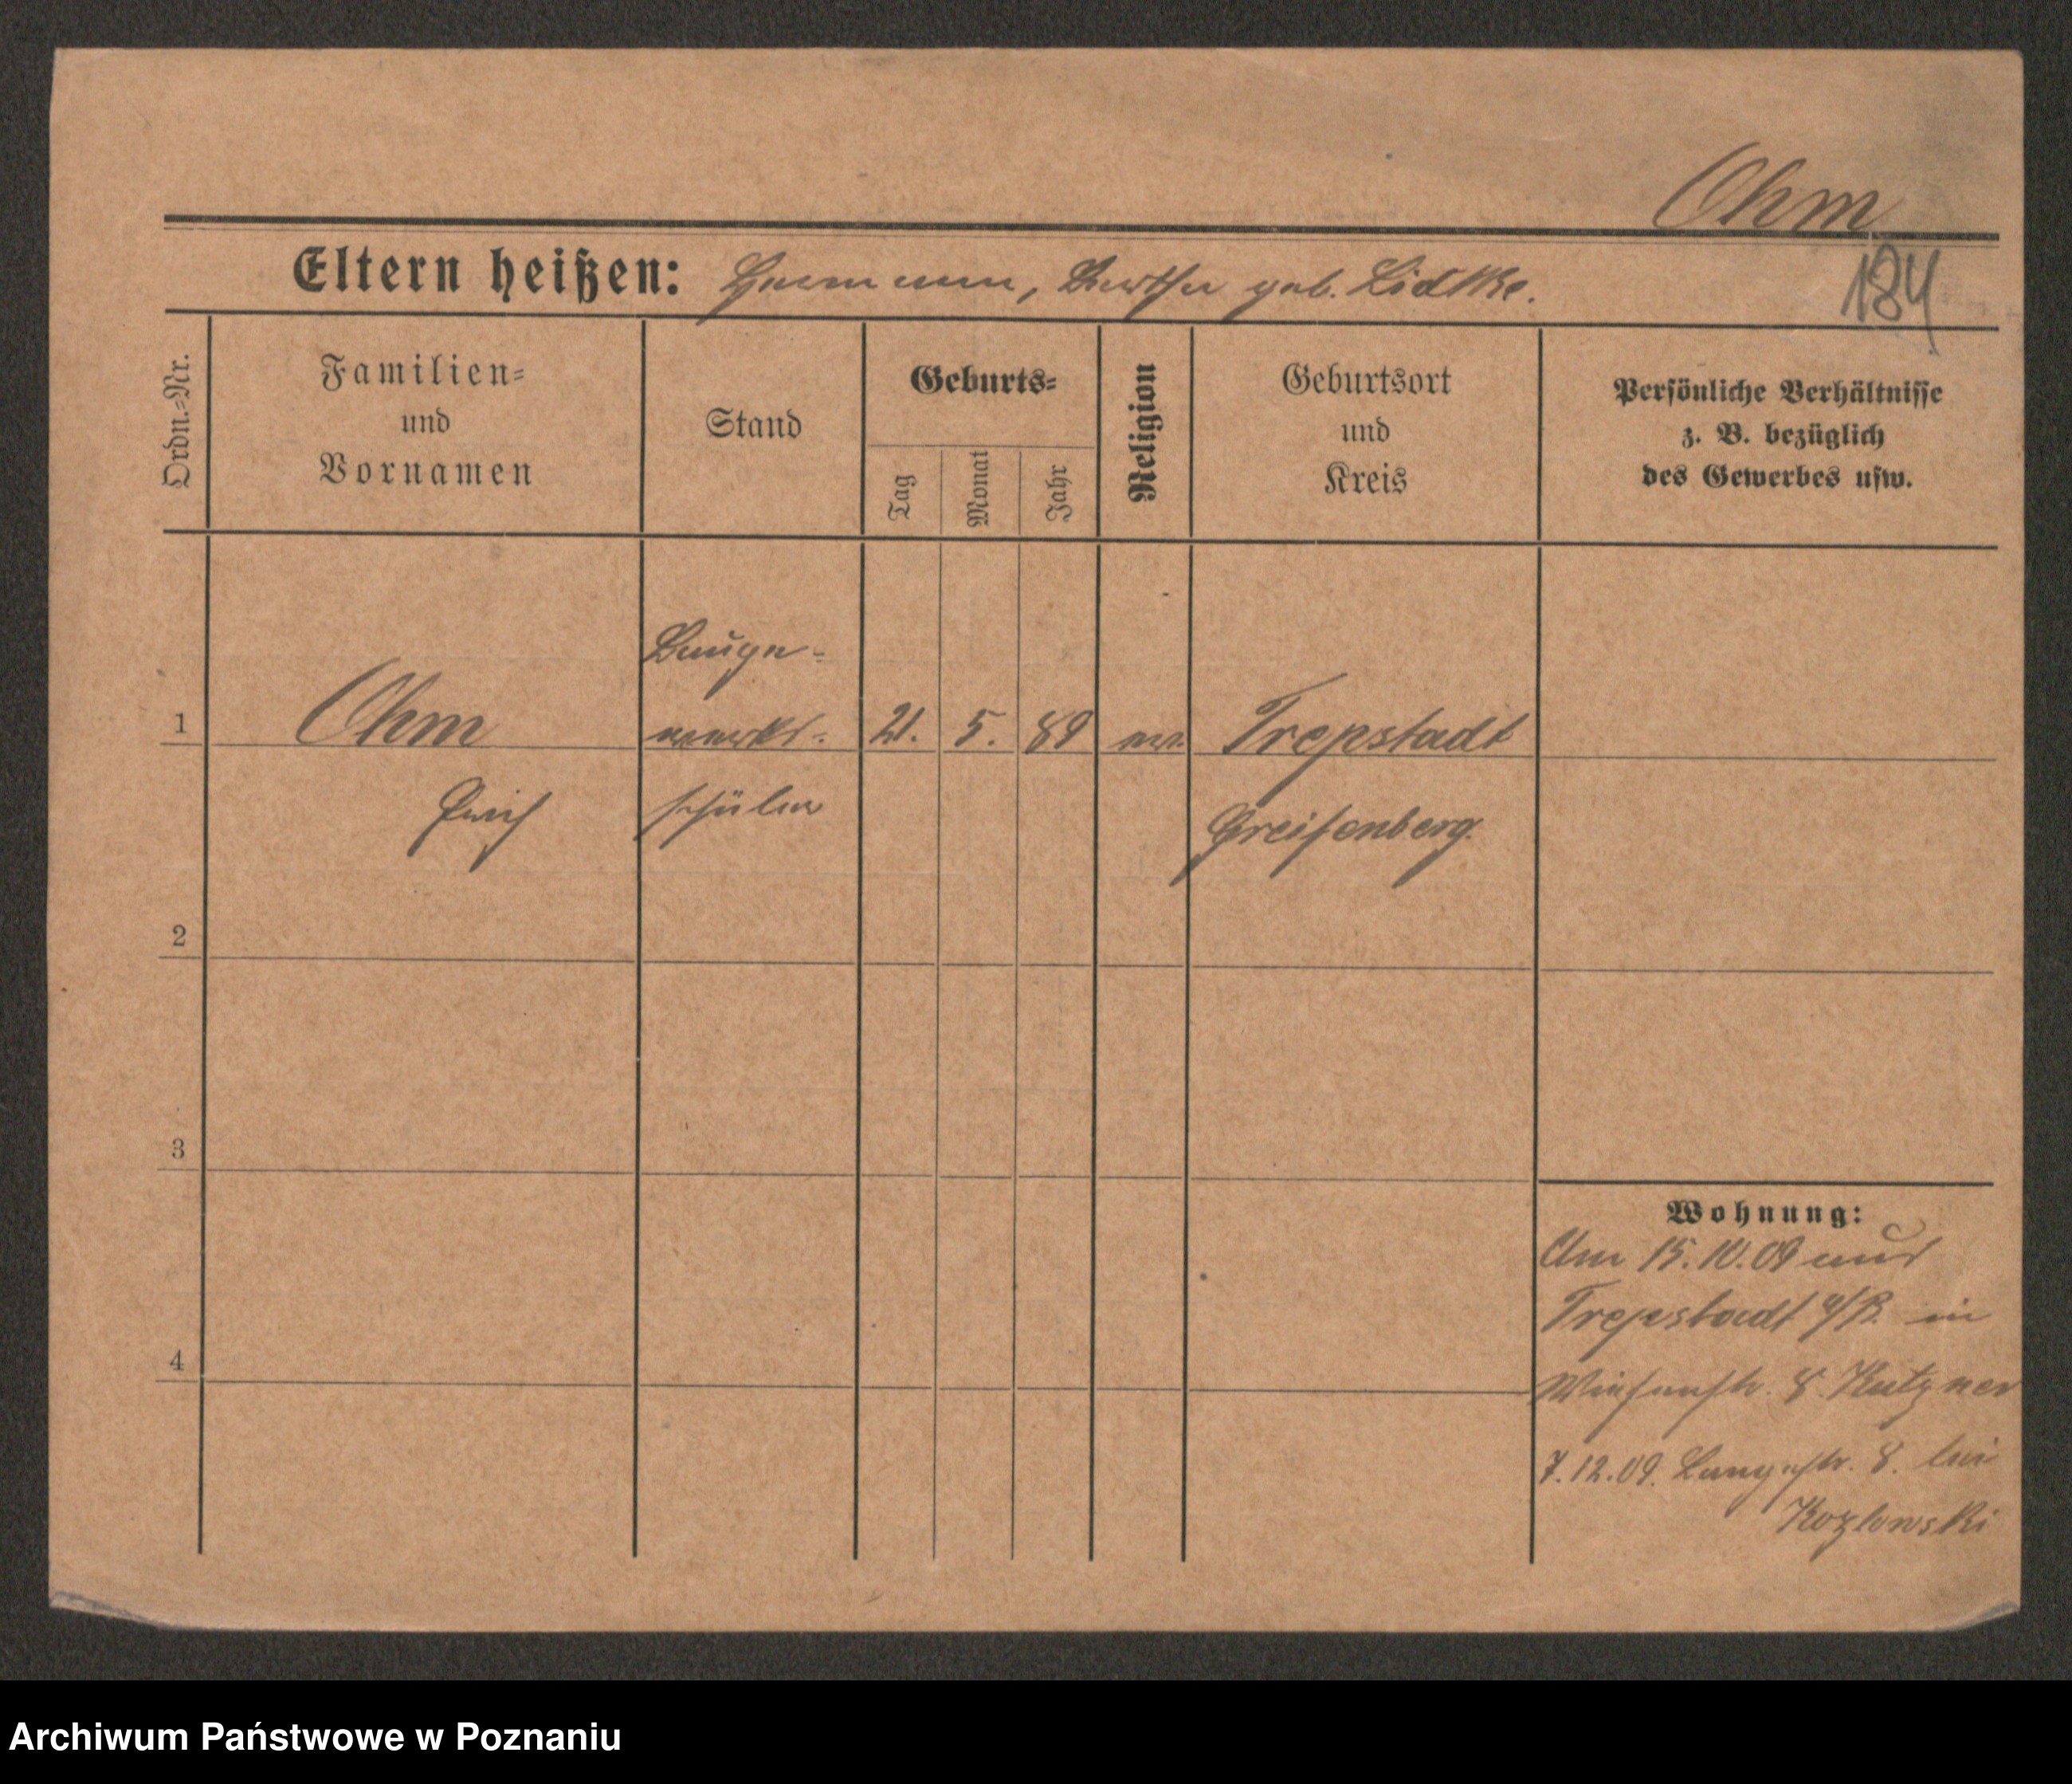 Ohm
Eltern heißen: Hermann, Bertha geb. Lidtke.
184
Ordn.-Nr.
Familien-
und
Vornamen
Stand
Geburts-
Tag
Monat
Jahr
Religion
Geburtsort
und
Kreis
Persönliche Verhältnisse
z. B. bezüglich
des Gewerbes usw.
Bauge-
1 Ohm werks- 21. 5. 89 ev. Trepstadt
Erich schüler Greifenberg.
2
3
4
Wohnung:
Am 15.10.09 aus
Trepstadt a/R. in
Wiesenstr. 8. Kutzner
7.12.09. Langestr. 8. bei
Kozlowski
Archiwum Państwowe w Poznaniu